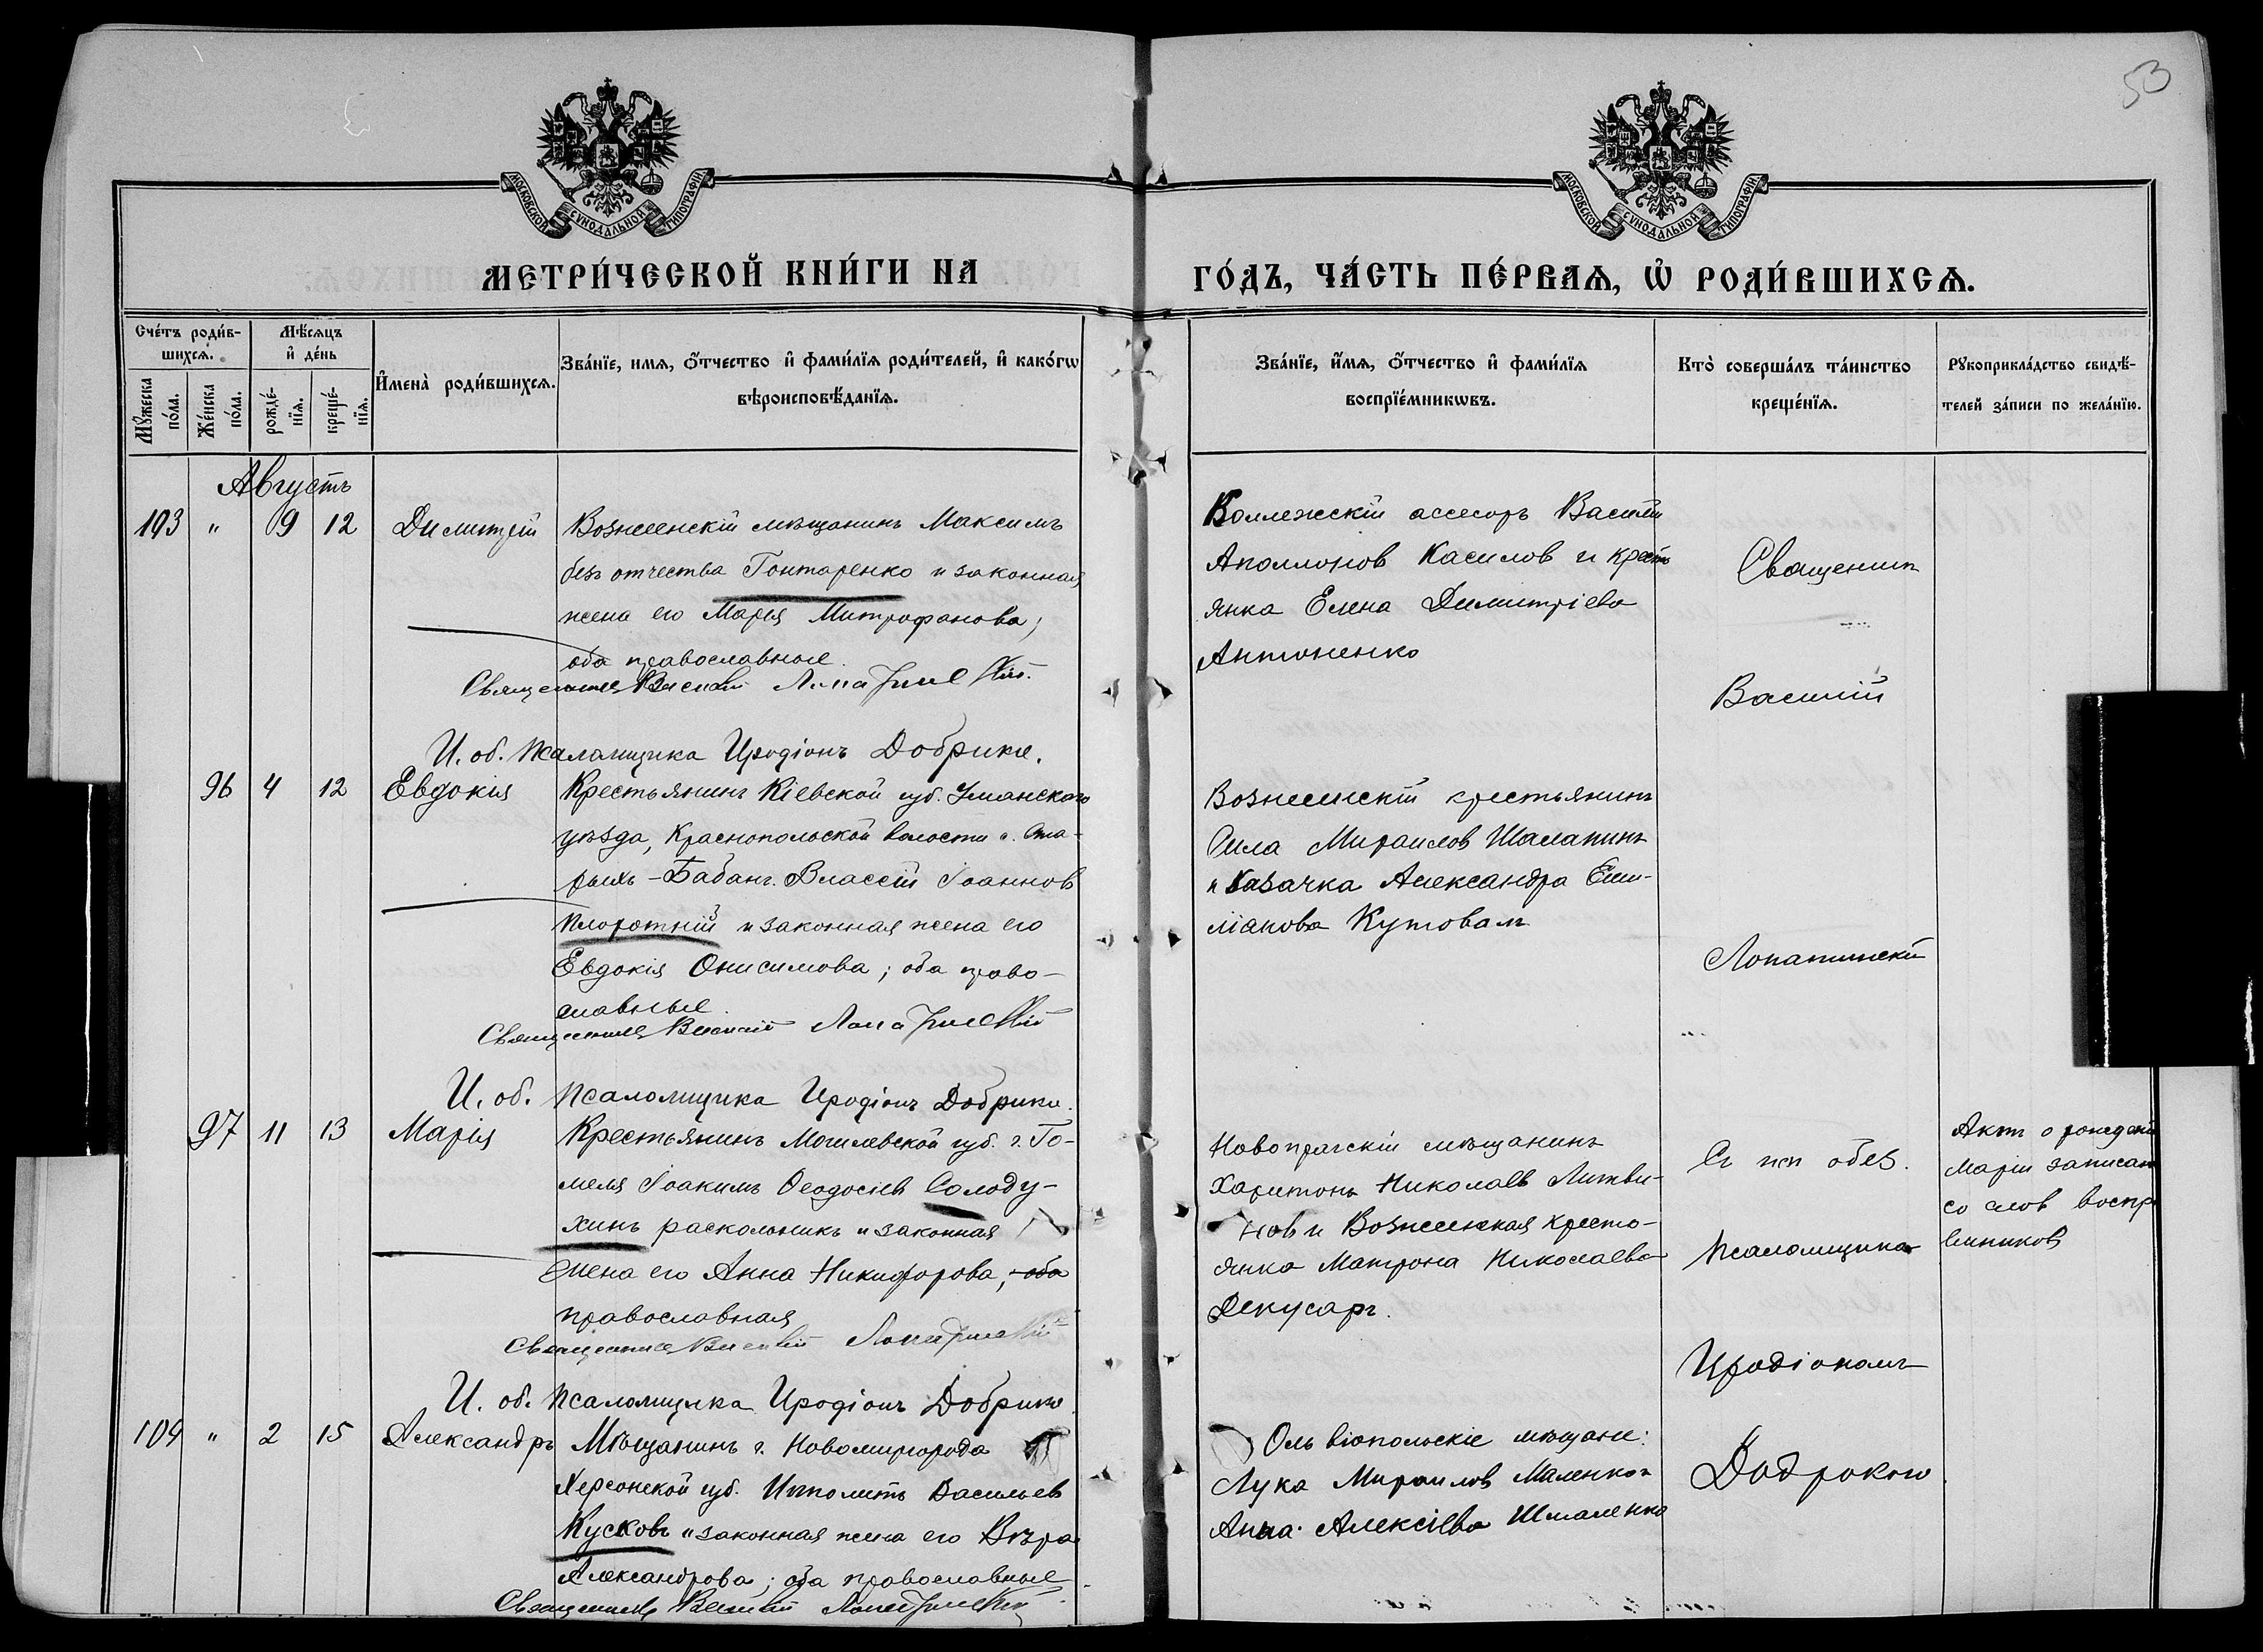 53
МОСКОВСКОЙ СѴНОДАЛЬНОЙ ТИПОГРАФІИ
МОСКОВСКОЙ СѴНОДАЛЬНОЙ ТИПОГРАФІИ
МЕТРИ́ЧЕСКОЙ КНИ́ГИ НА
ГО́ДЪ, ЧА́СТЬ ПЕ́РВАѦ, Ѡ҆ РОДИ́ВШИХСѦ.
Сче́тъ роди́в-
шихсѧ.
Мꙋ́жеска по́ла.
Же́нска по́ла.
Мѣ́сѧцъ
и҆ де́нь
рожде́-нїѧ.
креще́-нїѧ.
И҆мена̀ роди́вшихсѧ.
Зва́нїе, имѧ, ѻ҆́тчество и҆ фами́лїѧ роди́телей, и҆ како́гѡ
вѣроисповѣ́данїѧ.
Зва́нїе, и҆́мѧ, ѻ҆́тчество и҆ фами́лїѧ
воспрїе́мникѡвъ.
Кто̀ соверша́лъ та́инство
креще́нїѧ.
Рꙋкоприкла́дство свидѣ́-
телей за́писи по жела́нїю.
Августъ
103 " 9 12 Димитрій
Вознесенскій мѣщанинъ Максимъ
безъ отчества Гонтаренко и законная
жена его Марія Митрофанова;
оба православные.
Священникъ Василій Лопатинскій.
И. об. псаломщика Иродіонъ Добрики.
Коллежскій ассесоръ Василій
Аполлонов Касилов и кресть
янка Елена Димитріева
Антоненко
Священник
Василій
Лопатинскій
96 4 12 Евдокія
Крестьянинъ Кіевской губ. Уманского
уѣзда, Краснопольской волости с. Ста-
рыхъ-Бабанъ. Влассій Іоаннов
и законная жена его
Евдокія Онисимова; оба право-
славные.
Священникъ Василій Лопатинскій
И. об. псаломщика Иродіонъ Добрики.
Вознесенскій крестьянинъ
Сила Михаилов Шалапинъ
и казачка Александра Еми-
ліанова Кутовая
97 11 13 Марія
Крестьянинъ Могилевской губ. г. Го-
меля Іоакимъ Ѳеодосіев Солоду-
хинъ раскольникъ и законная
жена его Анна Никифорова, оба
православная
Священникъ Василій Лопатинскій
И. об. псаломщика Иродіонъ Добрики
Новопражскій мѣщанинъ
Харитонъ Николаев Литви-
нов и Вознесенская кресть-
янка Матрона Николаева
Декусаръ.
Съ исп обяз.
псаломщика
Иродіономъ
Акт о рожденіи
Маріи записан
со слов воспр
емников
104 " 2 15 Александръ
Мѣщанинъ г. Новомиргорода
Херсонской губ. Ипполитъ Васильев
Кусковъ и законная жена его Вѣра
Александрова; оба православные.
Священникъ Василій Лопатинскій
Ольвіопольскіе мѣщане:
Лука Михаилов Маленко и
Анна Алексіева Шмаленко